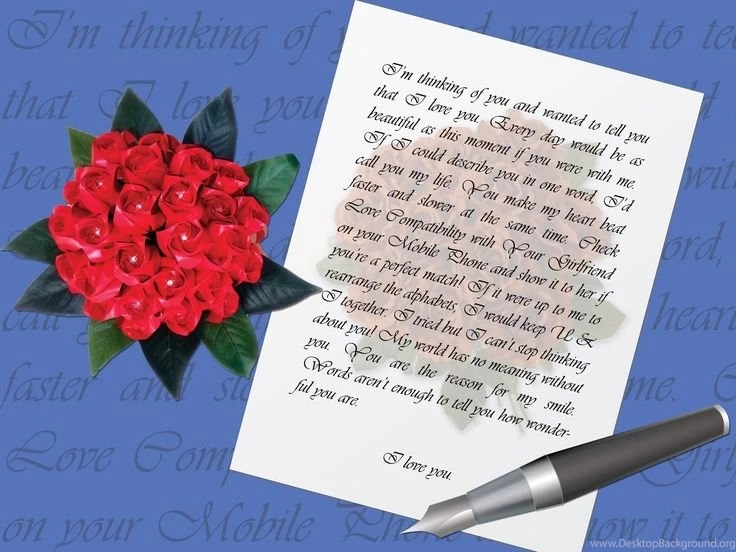 I'm thinking of you and wanted to tell you
that I love you. Every day would be as
beautiful as this moment if you were with me.
If I could describe you in one word, I'd
call you my life. You make my heart beat
faster and slower at the same time. Check
Love Compatibility with Your Girlfriend
on your Mobile Phone and show it to her if
you're a perfect match! If it were up to me to
rearrange the alphabets, I would keep U &
I together. I tried but I can't stop thinking
about you! My world has no meaning without
you. You are the reason for my smile.
Words aren't enough to tell you how wonder-
ful you are.
I love you.
I'm thinking of you and wanted to tell
that I love you
beau
word,
call you heart
faster and slo me. C
Love Comp Girlf
on your Mobile Phone and show it to
www.DesktopBackground.org